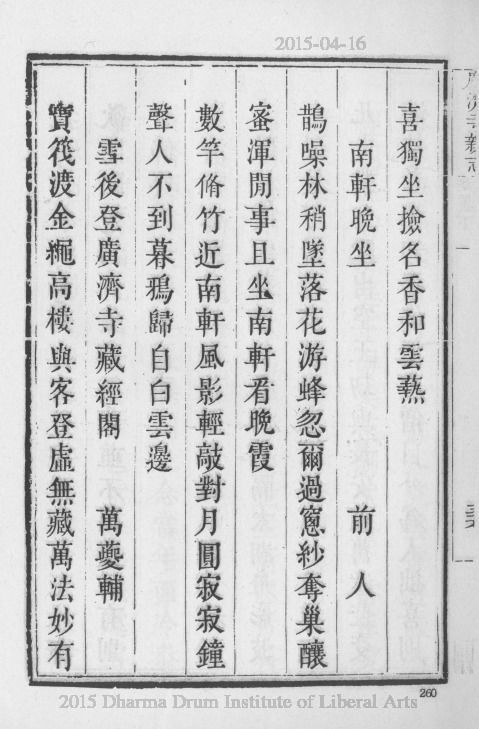 2015-04-16
喜獨坐撿名香和雲爇
南軒晚坐 前人
鵲噪林稍墜落花游蜂忽爾過窻紗奪巢釀
蜜渾閒事且坐南軒看晚霞
數竿脩竹近南軒風影輕敲對月圓寂寂鐘
聲人不到暮鴉歸自白雲邊
雪後登廣濟寺藏經閣 萬夔輔
寶筏渡金繩高樓與客登虛無藏萬法妙有
260
2015 Dharma Drum Institute of Liberal Arts